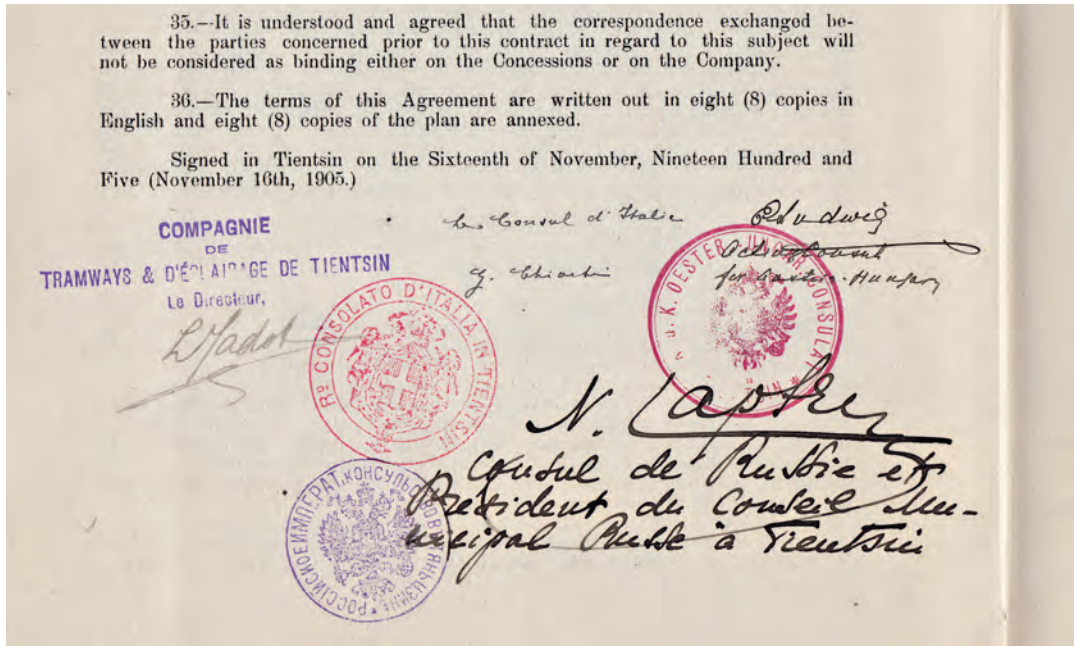 35.—It is understood and agreed that the correspondence exchanged be-
tween the parties concerned prior to this contract in regard to this subject will
not be considered as binding either on the Concessions or on the Company.
36.—The terms of this Agreement are written out in eight (8) copies in
English and eight (8) copies of the plan are annexed.
Signed in Tientsin on the Sixteenth of November, Nineteen Hundred and
Five (November 16th, 1905.)
COMPAGNIE
DE
TRAMWAYS & D'ÉCLAIRAGE DE TIENTSIN
Le Directeur,
L Jadot
Le Consul d'Italie
Ludwig
Acting Consul
for Austria-Hungary
Rº CONSOLATO D'ITALIA IN TIENTSIN
K. U. K. OESTER. UNGAR. CONSULAT
N. Laptew
Consul de Russie et
Président du Conseil Mu-
nicipal Russe à Tientsin
РОССІЙСКОЕ ИМПЕРАТ. КОНСУЛЬСТВО ВЪ ТЯНЬЦЗИНѢ